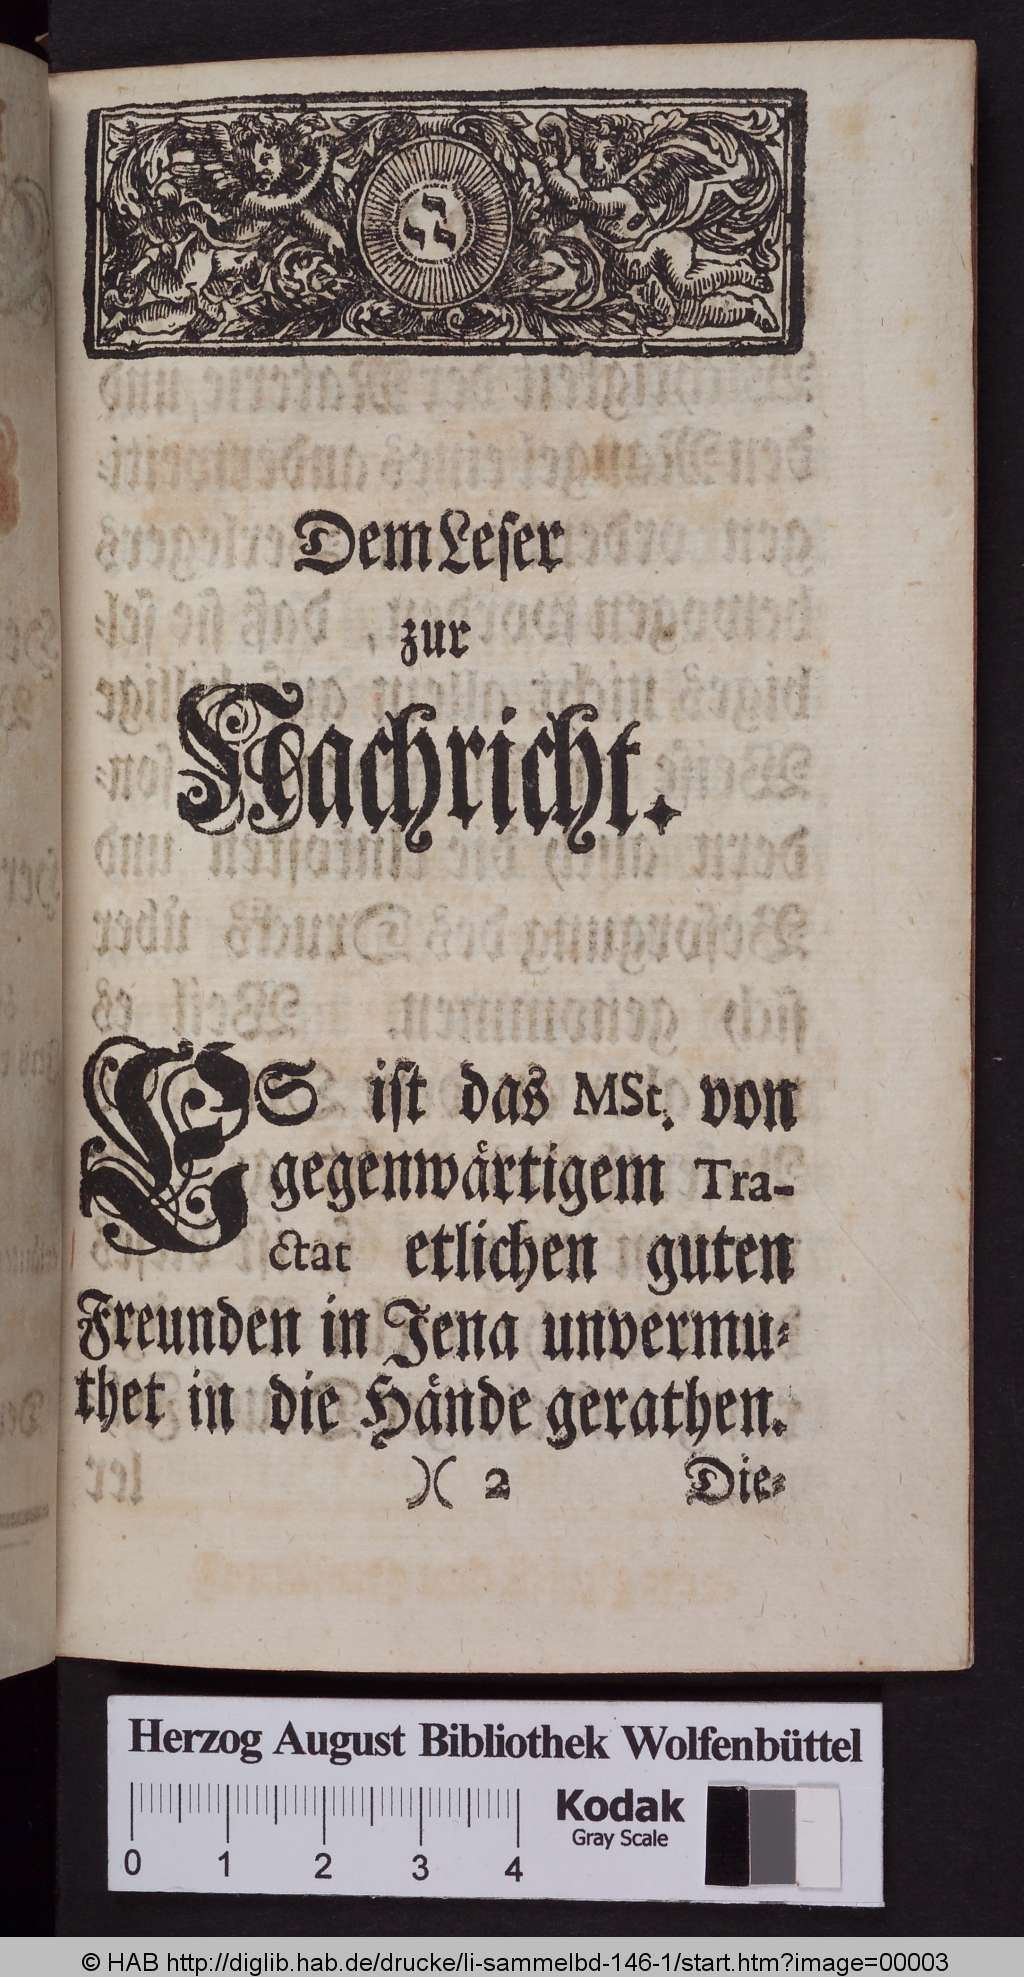 Dem Leser
zur
Nachricht.
ES ist das MSt. von
gegenwärtigem Tra-
ctat etlichen guten
Freunden in Jena unvermu-
thet in die Hände gerathen.
)( 2 Die-
Herzog August Bibliothek Wolfenbüttel
Kodak
Gray Scale
0 1 2 3 4
© HAB http://diglib.hab.de/drucke/li-sammelbd-146-1/start.htm?image=00003